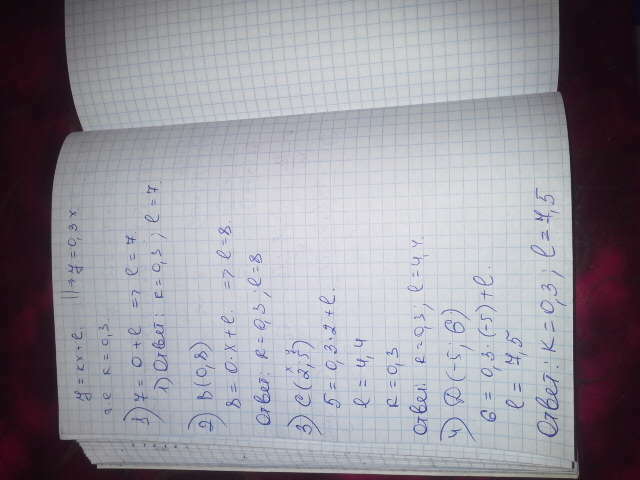 y = kx + l. || → y = 0,3x
т.е k = 0,3.
1) 7 = 0 + l => l = 7
1) Ответ: k = 0,3; l = 7.
2) B(0,8)
8 = 0·x + l. => l = 8.
Ответ: k = 0,3; l = 8
3) C(2,5)
x y
5 = 0,3·2 + l.
l = 4,4
k = 0,3
Ответ: k = 0,3; l = 4,4.
4) D(-5; 6)
6 = 0,3·(-5) + l.
l = 7,5
Ответ: k = 0,3; l = 7,5